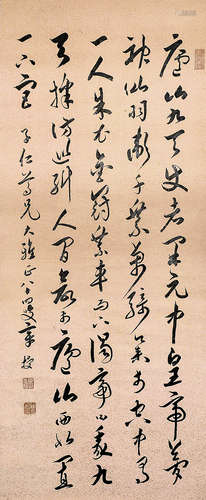 廬山九天使者開元中皇帝夢
神仙羽衛千乘萬騎集於空中有
一人朱衣金冠乘車而下謁帝曰我九
天採訪巡糾人間欲於廬山西北置
一下宮 子仁尊兄大雅正